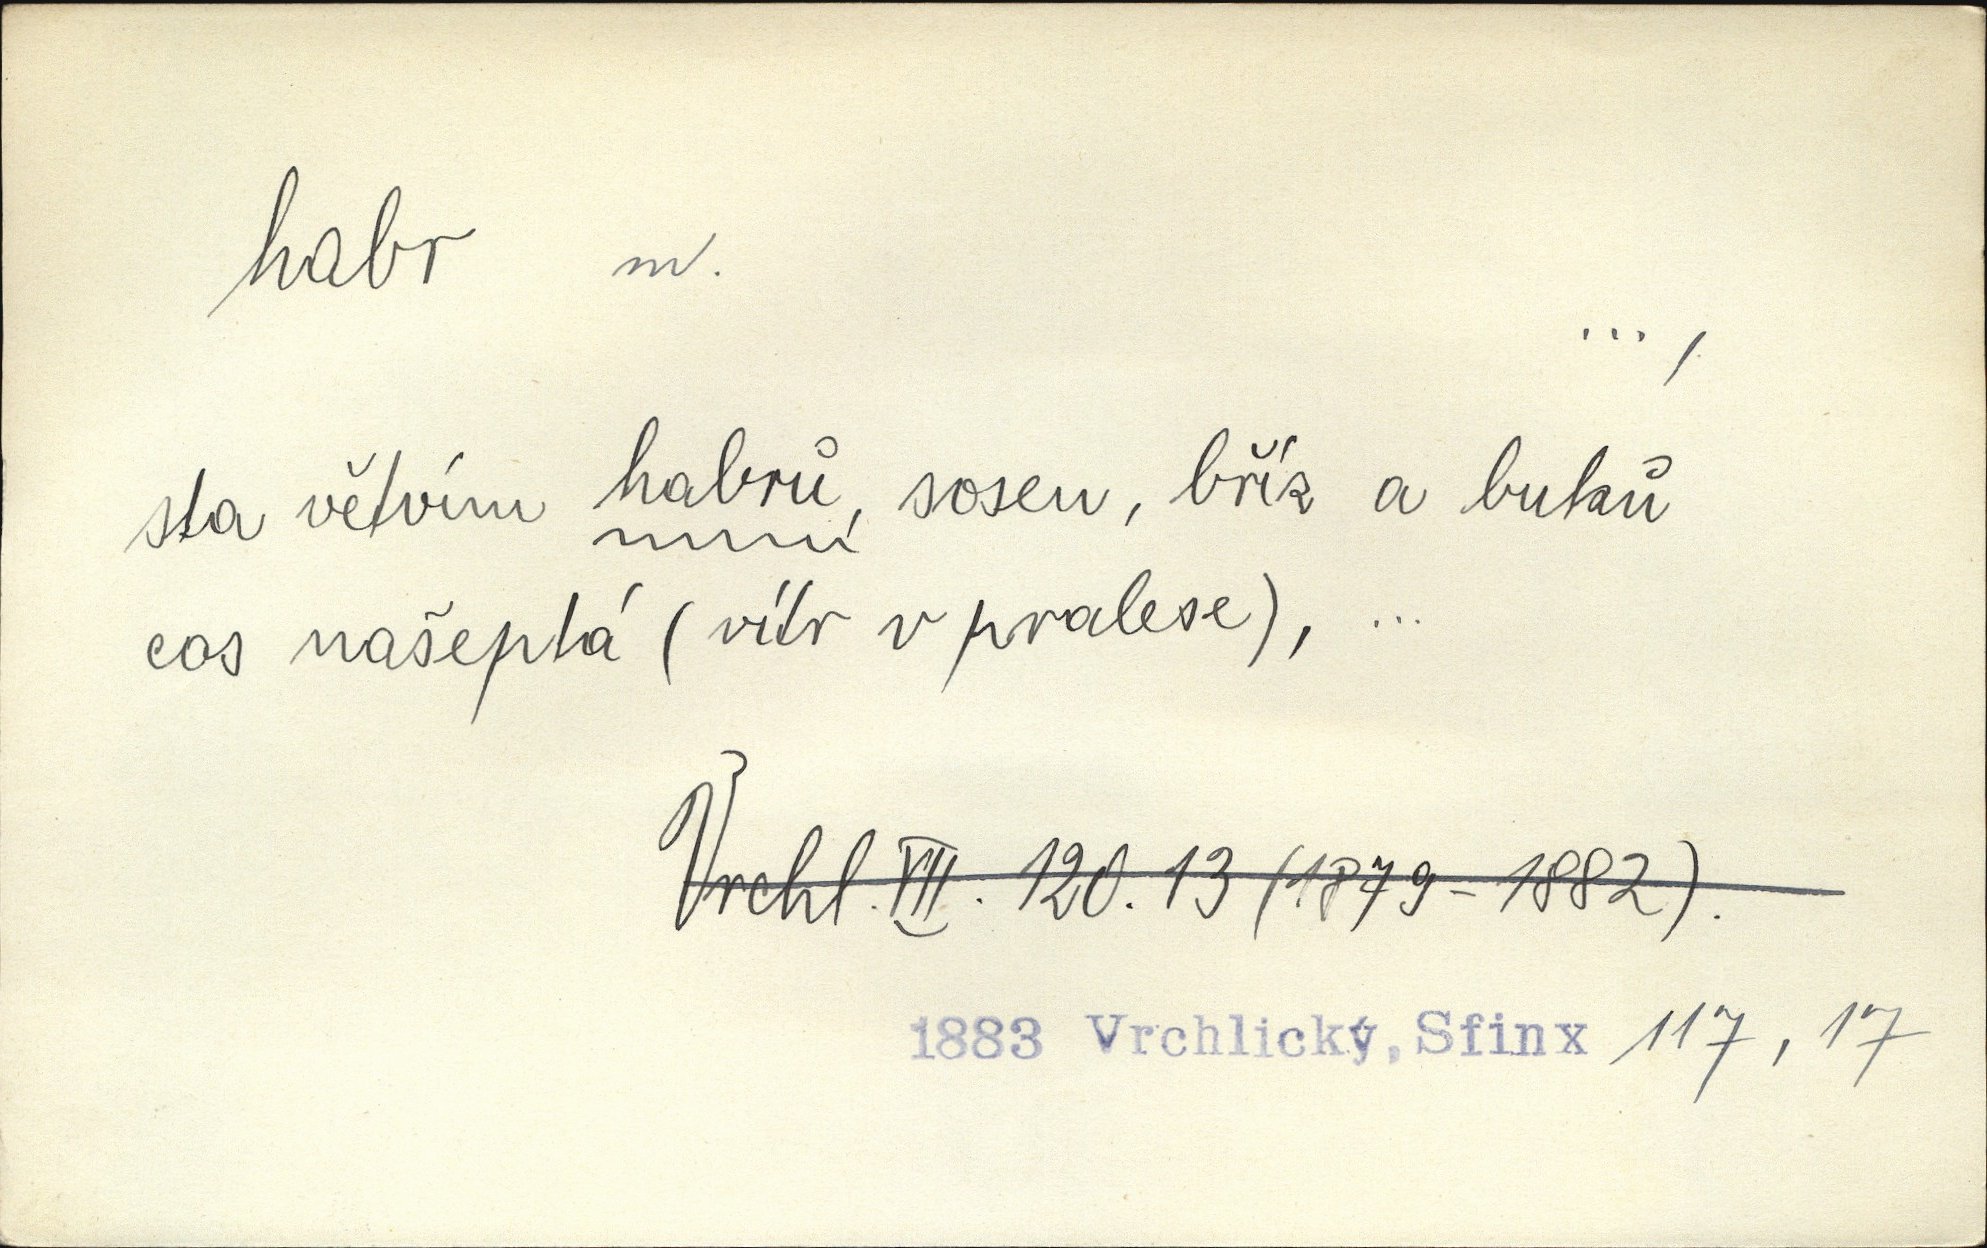 habr m.
... ,
sta větvím habrů, sosen, bříz a buků
cos našeptá (vítr v pralese), ...
Vrchl. VII. 120. 13 (1879 - 1882).
1883 Vrchlický, Sfinx 117, 17